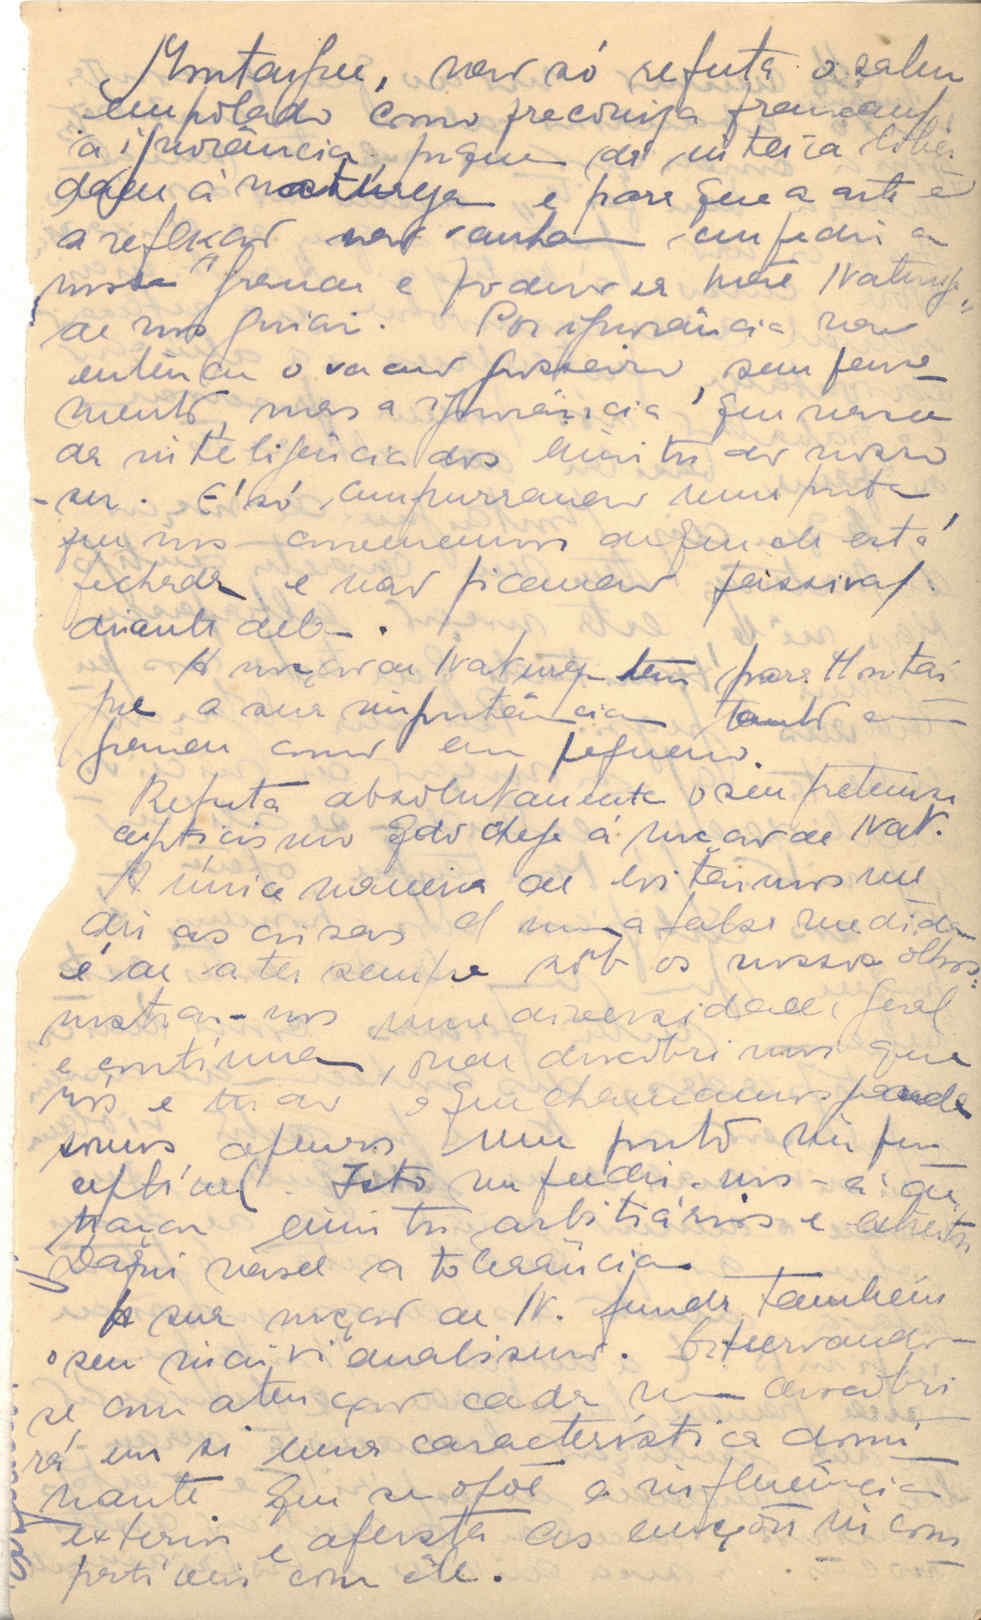 Montaigne, não só refuta o saber
empolado como preconiza francamte
a ignorância, porque dá inteira liber
dade à natureza e para que a arte e
a reflexão não venham impedir a
nossa grande e poderosa Mãe Natureza
de nos guiar. Por ignorância não
entende o vacuo grosseiro, sem
mento, mas a ignorância que nasce
da inteligência dos limites do nosso
ser. É só empurrando uma porta
que nos convencemos de que ela está
fechada e não ficando passivos
diante dela.
A noção de Natureza tem para Montai
gne a sua importância tanto em
grande como em pequeno.
Refuta absolutamente o seu pretenso
cepticismo qdo chega á noção de Nat.
A única maneira de evitarmos me
dir as coisas numa falsa medida
é de a ter sempre sob os nossos olhos:
mostra-nos uma diversidade geral
e contínua, onde descobrimos que
nós e tudo o que chamamos grande
somos apenas um ponto imper
ceptível. Isto impedir-nos-á de
traçar limites arbitrários e
Daqui nasce a tolerância.
A sua noção de N. funda também
o seu individualismo. Observando-
se com atenção cada um descobri
rá em si uma característica domi
nante que se opõe a influência
exterior e afasta as emoções incom
patíveis com ele.